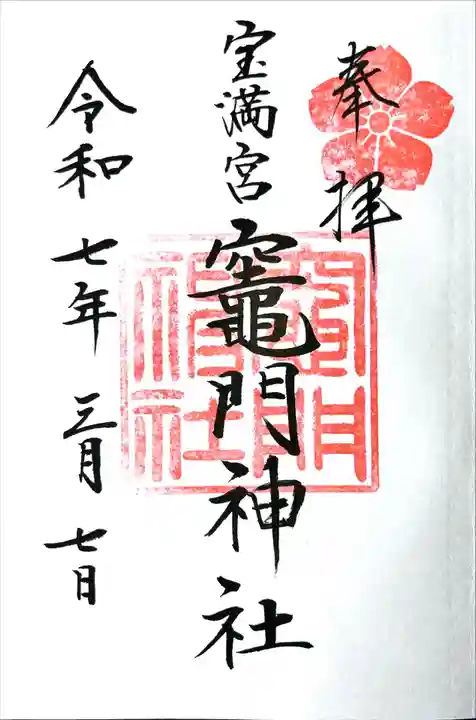 奉拝
宝満宮
竈門神社
竈門
神社
令和七年三月七日